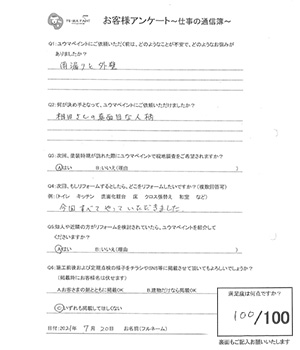 お客様アンケート～仕事の通信簿～
Q1:ユウマペイントにご依頼いただく前は、どのようなことが不安で、どのようなお悩みが
ありましたか？
雨漏りと外壁
Q2:何が決め手となって、ユウマペイントにご依頼いただけましたか？
相田さんの真面目な人柄
Q3:次回、塗装時期が訪れた際にユウマペイントで現地調査をご希望されますか？
A:はい B:いいえ(理由 )
Q4:次回、もしリフォームするとしたら、どこをリフォームしたいですか？(複数回答可)
例:(トイレ キッチン 洗面化粧台 床 クロス張替え 和室 など)
今回すべてやっていただきました。
Q5:知人や近隣の方がリフォームを検討されていたら、ユウマペイントを紹介して
くださいますか？
A:はい B:いいえ(理由 )
Q6:施工前後および定期点検の様子をチラシやSNS等に掲載させて頂いてもよろしいでしょうか？
(掲載時にお客様名は伏せます)
A:お客さまの顔とともに掲載OK B:建物だけなら掲載OK
C:いずれも掲載してほしくない
満足度は何点ですか？
100/100
日付:2024年 7月 20日 お名前(フルネーム)
裏面もご記入お願いいたします